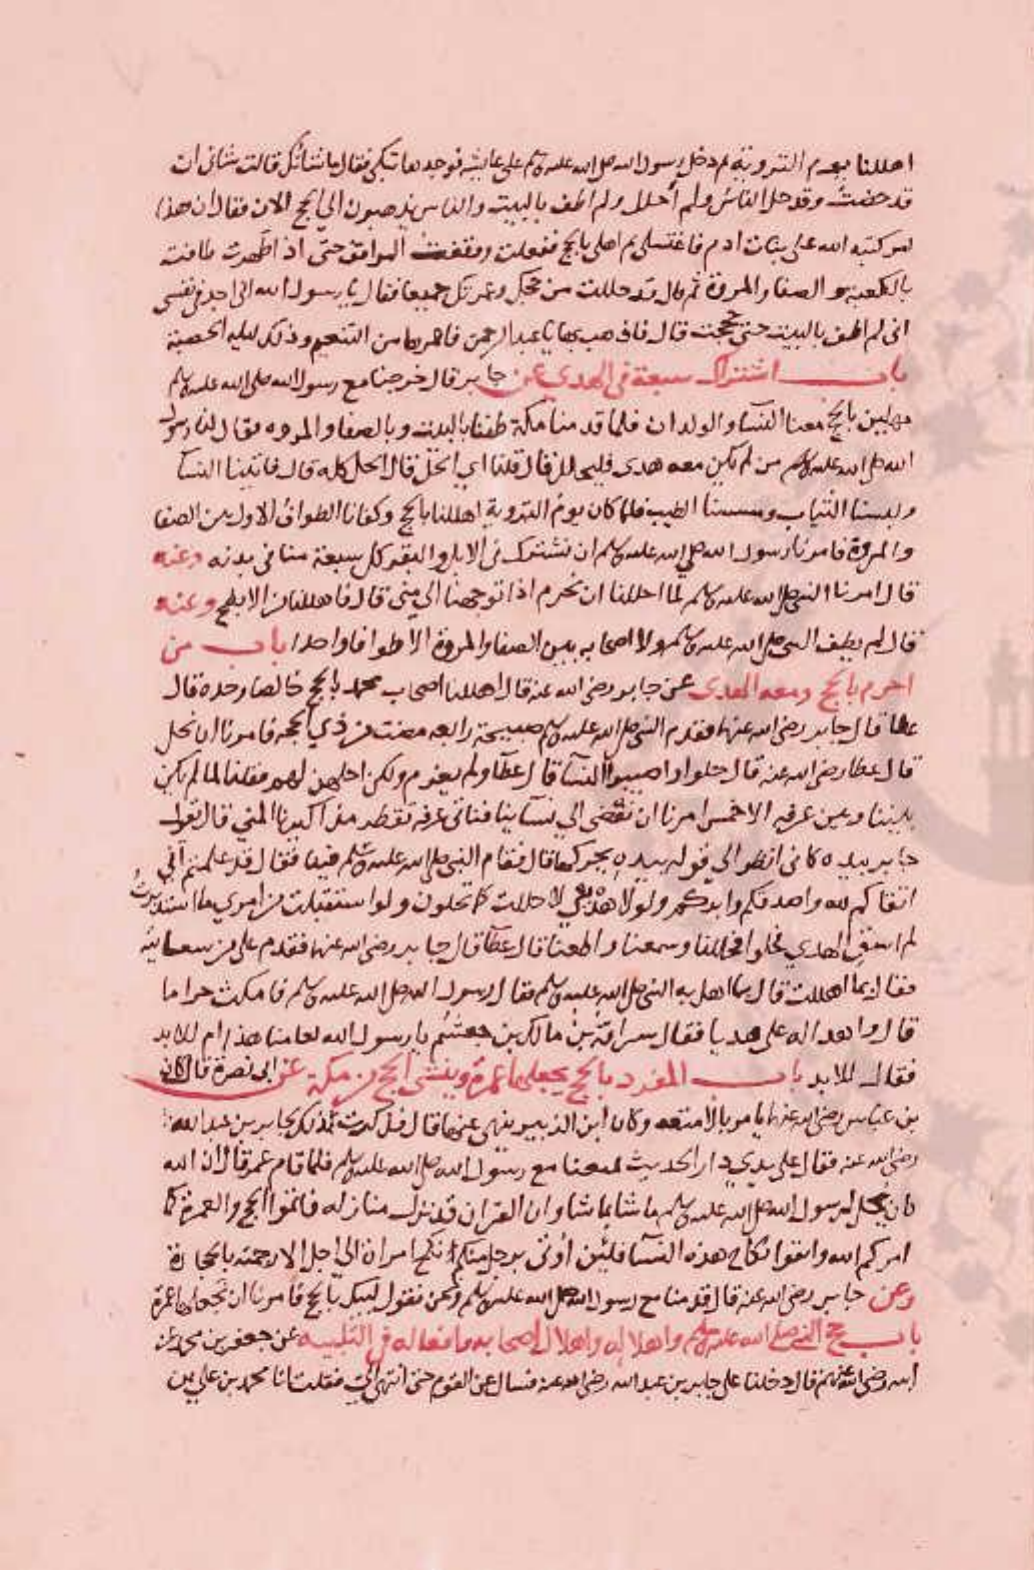 اهللنا يوم التروية ثم دخل رسول الله صلى الله عليه وسلم على عايشة فوجدها تبكي فقال ما شانك قالت شاني اني
قد حضت وقد حل الناس ولم أحلل ولم اطف بالبيت والناس يذهبون الي الحج الان فقال ان هذا
امر كتبه الله على بنات ادم فاغتسلي ثم اهلي بالحج ففعلت ووقفت المواقف حتى اذا طهرت طافت
بالكعبة و الصفا والمروة ثم قال قد حللت من حجك وعمرتك جميعا فقال يا رسول الله اني اجد في نفسي
اني لم اطف بالبيت حتى حججت قال فاذهب بها يا عبد الرحمن فاعمرها من التنعيم وذلك ليلة الحصبة
باب اشتراك سبعة في الهدي عن جابر قال خرجنا مع رسول الله صلى الله عليه وسلم
مهلين بالحج معنا النسا والولدان فلما قدمنا مكة طفنا بالبيت وبالصفا والمروه فقال لنا رسول
الله صلى الله عليه وسلم من لم يكن معه هدى فليحلل قال قلنا اي الحل قال الحل كله قال فاتينا النسا
ولبسنا الثياب ومسسنا الطيب فلما كان يوم التروية اهللنا بالحج وكفانا الطواف الاول بين الصفا
والمروة فامرنا رسول الله صلى الله عليه وسلم ان نشترك في الابل والبقر كل سبعة منا في بدنه وعنه
قال امرنا النبي صلى الله عليه وسلم لما احللنا ان نحرم اذا توجهنا الي منى قال فاهللنا من الابطح وعنه
قال لم يطف النبي صلى الله عليه وسلم ولا اصحابه بين الصفا والمروة الا طوافا واحدا باب من
احرم بالحج ومعه الهدي عن جابر رضي الله عنه قال اهللنا اصحاب محمد بالحج خالصا وحده قال
عطا قال جابر رضي الله عنهما فقدم النبي صلى الله عليه وسلم صبيحة رابعه مضت من ذي الحجه فامرنا ان نحل
قال عطا رضي الله عنه قال حلوا واصيبوا النسآ قال عطآ ولم يعزم ولكن احلهن لهم فقلنا لما لم يكن
بيننا وبين عرفه الا خمس امرنا ان نفضي الي نسآينا فناتي عرفه تقطر مذاكيرنا المني قال يقول
جابر بيده كاني انظر الي قوله بيده يحركها قال فقام النبي صلى الله عليه وسلم فينا فقال قد علمتم اني
اتقاكم لله واصدقكم وابركم ولولا هديي لاحللت كما تحلون ولو استقبلت من امري ما استدبرت
لم اسق الهدي فحلوا فحللنا وسمعنا واطعنا قال عطآ قال جابر رضي الله عنهما فقدم علي من سعايته
فقال بما اهللت قال بما اهل به النبي صلى الله عليه وسلم فقال رسول الله صلى الله عليه وسلم فامكث حراما
قال واهدا له علي هديا فقال سراقة بن مالك بن جعشم يا رسول الله لعامنا هذا ام للابد
فقال للابد باب المفرد بالحج يجعلها عمرة وينشى الحج من مكة عن ابى نضرة قال كان
بن عباس رضي الله عنهما يامر بالامتعه وكان ابن الزبير ينهى عنها قال فذكرت ذلك لجابر بن عبد الله
رضي الله عنه فقال على يدي دار الحديث تمتعنا مع رسول الله صلى الله عليه وسلم فلما قام عمر قال ان الله
كان يحل لرسول الله صلى الله عليه وسلم ما شا بما شا وان القران قد نزل منازله فاتموا الحج والعمرة كما
امركم الله وابقوا نكاح هذه النسآ فلئن أوتى برجل منكم نكح امراة الي اجل الا رجمته بالحجارة
وعن جابر رضي الله عنه قال قدمنا مع رسول الله صلى الله عليه وسلم ونحن نقول لبيك بالحج فامرنا ان نجعلها عمرة
باب حج النبي صلى الله عليه وسلم واهلاله واهلال اصحابه وما فعاله في التلبية عن جعفر بن محمد عن
ابيه رضي الله عنهم قال دخلنا على جابر بن عبد الله رضي الله عنه فسال عن القوم حتى انتهى الي فقلت انا محمد بن علي بن